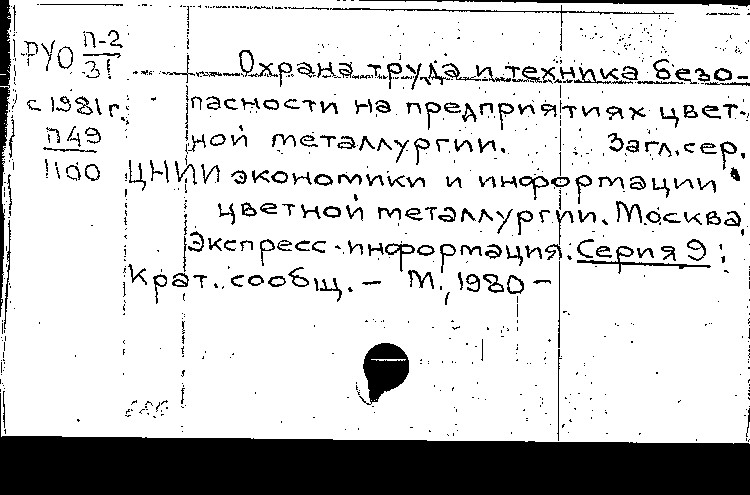 РУО п-2
31
Охрана труда и техника безо-
с 1981г.
пасности на предприятиях цвет-
п49
ной металлургии. Загл.сер.
1100
ЦНИИ экономики и информации
цветной металлургии. Москва.
Экспресс-информация. Серия 9:
Крат. сообщ. — М., 1980 —